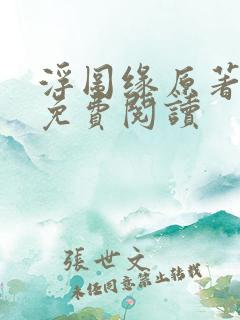 浮图缘原著
免費閱讀
張世文
未經同意禁止轉載